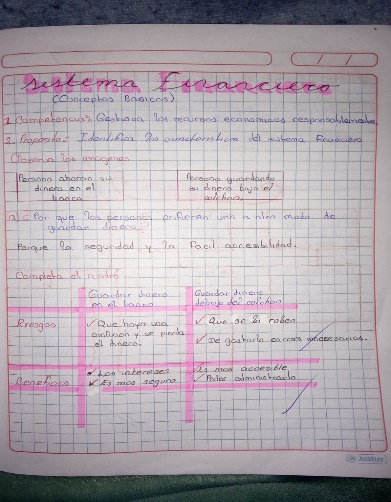 Sistema Financiero
(Conceptos Básicos)
1. Competencia: Gestiona los recursos economicos responsablemente
2. Proposito: Identifica las características del sistema financiero
Observa las imagenes
Persona ahorran su
dinero en el
banco
Persona guardando
su dinero bajo el
colchon.
a) Por que las personas prefieren una u otra modo de
guardar dinero.
Porque la seguridad y la facil accesibilidad.
Completa el cuadro
Guardar dinero
en el banco
Guardar dinero
debajo del colchon
Riesgos
✓ Que haya una
y se pierda
el dinero.
✓ Que se lo roben
✓ De gastarlo en cosas innecesarias.
Beneficios
✓ Los intereses
✓ Es mas segura
✓ Es mas accesible
✓ Poder administrarlo
Justus